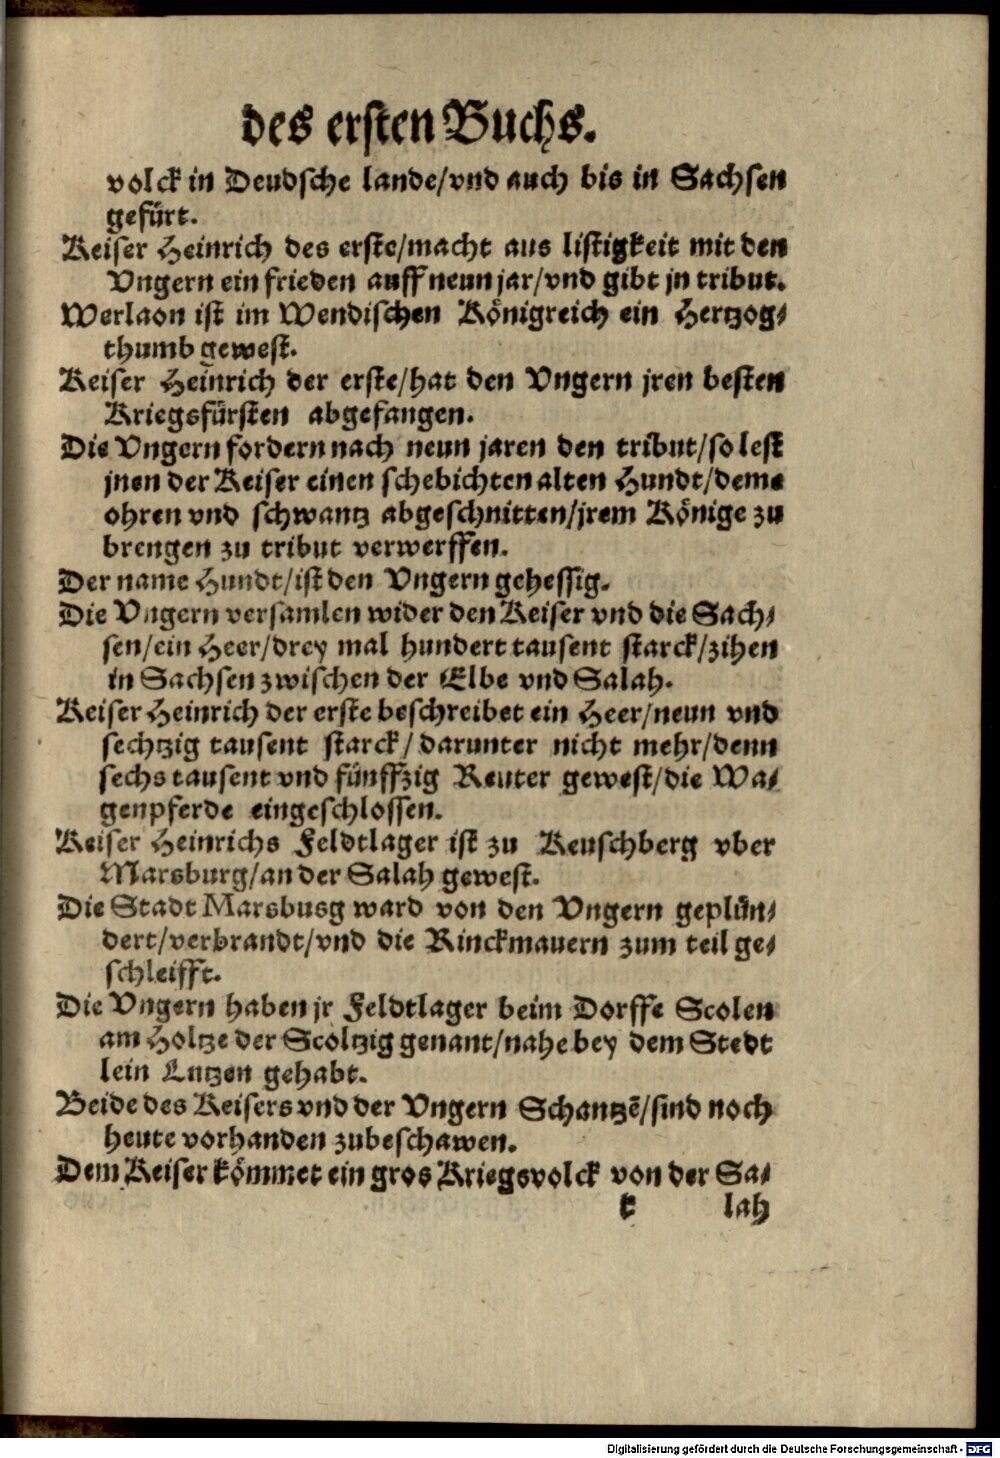 des ersten Buchs.
volck in Deudsche lande/vnd auch bis in Sachsen
gefürt.
Keiser Heinrich des erste/macht aus listigkeit mit den
Vngern ein frieden auff neun jar/vnd gibt jn tribut.
Werlaon ist im Wendischen Königreich ein Hertzog⸗
thumb gewest.
Keiser Heinrich der erste/hat den Vngern jren besten
Kriegsfürsten abgefangen.
Die Vngern fordern nach neun jaren den tribut/so lest
jnen der Keiser einen schebichten alten Hundt/deme
ohren vnd schwantz abgeschnitten/jrem Könige zu
brengen zu tribut verwerffen.
Der name Hundt/ist den Vngern gehessig.
Die Vngern versamlen wider den Keiser vnd die Sach⸗
sen/ein Heer/drey mal hundert tausent starck/zihen
in Sachsen zwischen der Elbe vnd Salah.
Keiser Heinrich der erste beschreibet ein Heer/neun vnd
sechtzig tausent starck/darunter nicht mehr/denn
sechs tausent vnd fünffzig Reuter gewest/die Wa⸗
genpferde eingeschlossen.
Keiser Heinrichs Feldtlager ist zu Keuschberg vber
Marsburg/an der Salah gewest.
Die Stadt Marsbusg ward von den Vngern geplün⸗
dert/verbrandt/vnd die Rinckmauern zum teil ge⸗
schleifft.
Die Vngern haben jr Feldtlager beim Dorffe Scolen
am Holtze der Scoltzig genant/nahe bey dem Stedt
lein Lutzen gehabt.
Beide des Keisers vnd der Vngern Schantzē/sind noch
heute vorhanden zubeschawen.
Dem Keiser kömmet ein gros Kriegsvolck von der Sa⸗
k lah
Digitalisierung gefördert durch die Deutsche Forschungsgemeinschaft - DFG